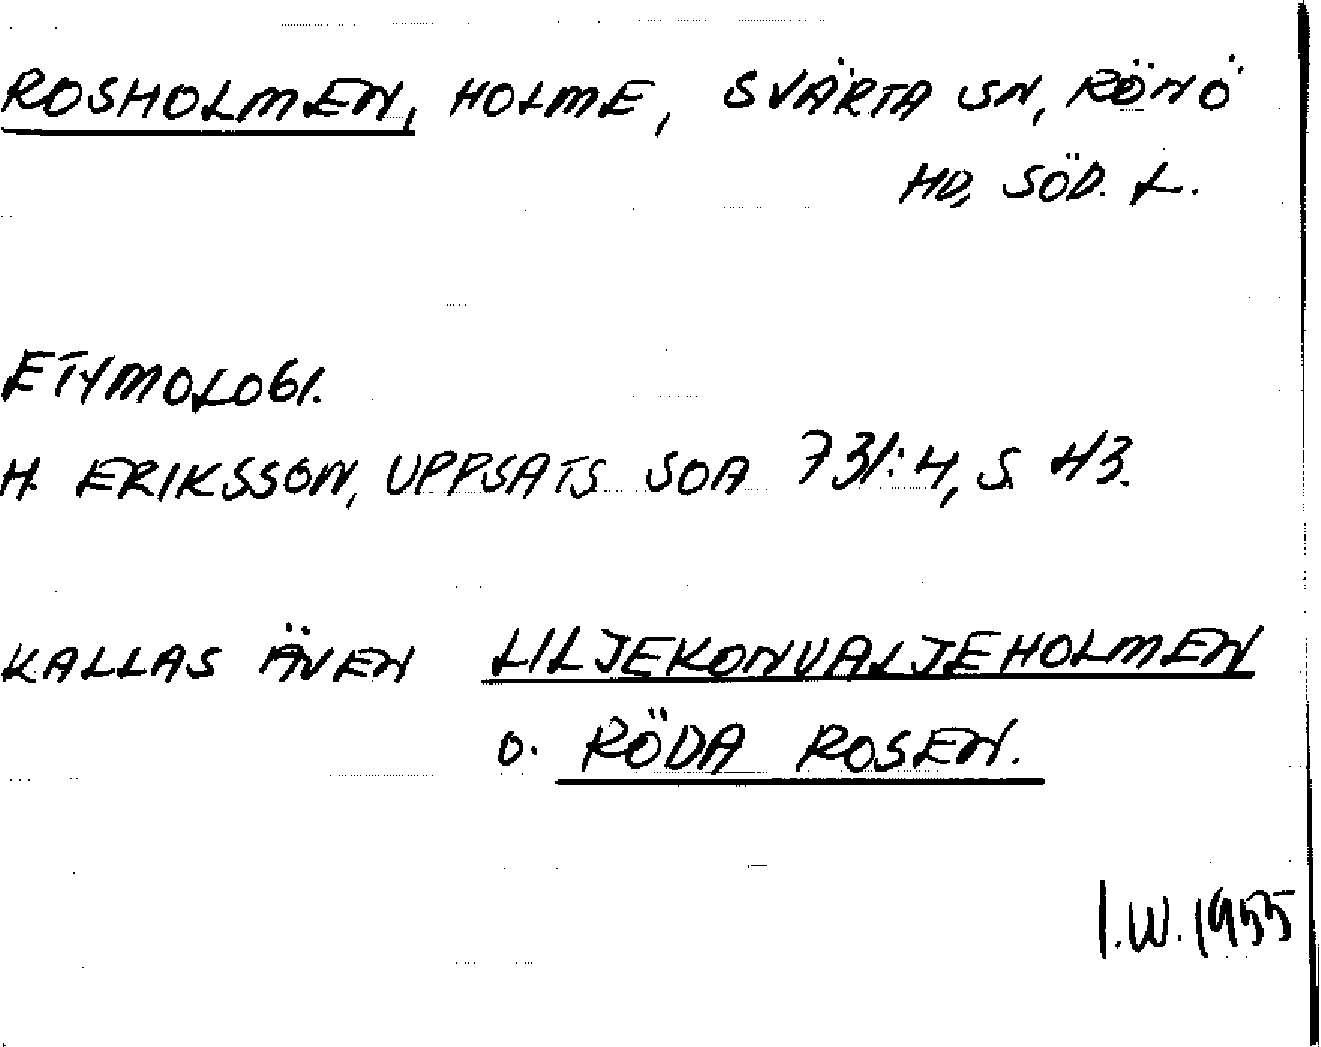 ROSHOLMEN, HOLME, SVÄRTA SN, RÖNÖ
HD, SÖD. L.
ETYMOLOGI.
H. ERIKSSON, UPPSATS SOA 731:4, S. 43.
KALLAS ÄVEN LILJEKONVALJEHOLMEN
O. RÖDA ROSEN.
I.W. 1955